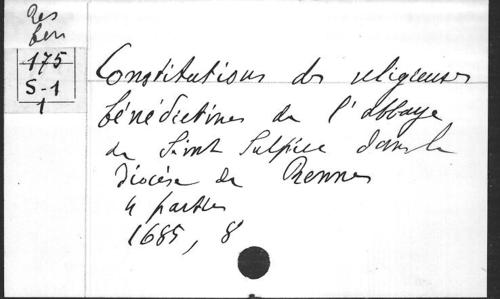 Res
ben
175
S-1
1
Constitutions des religieuses
bénédictines de l'abbaye
de Saint Sulpice dans le
diocèse de Rennes
4 parties
1685, 8°